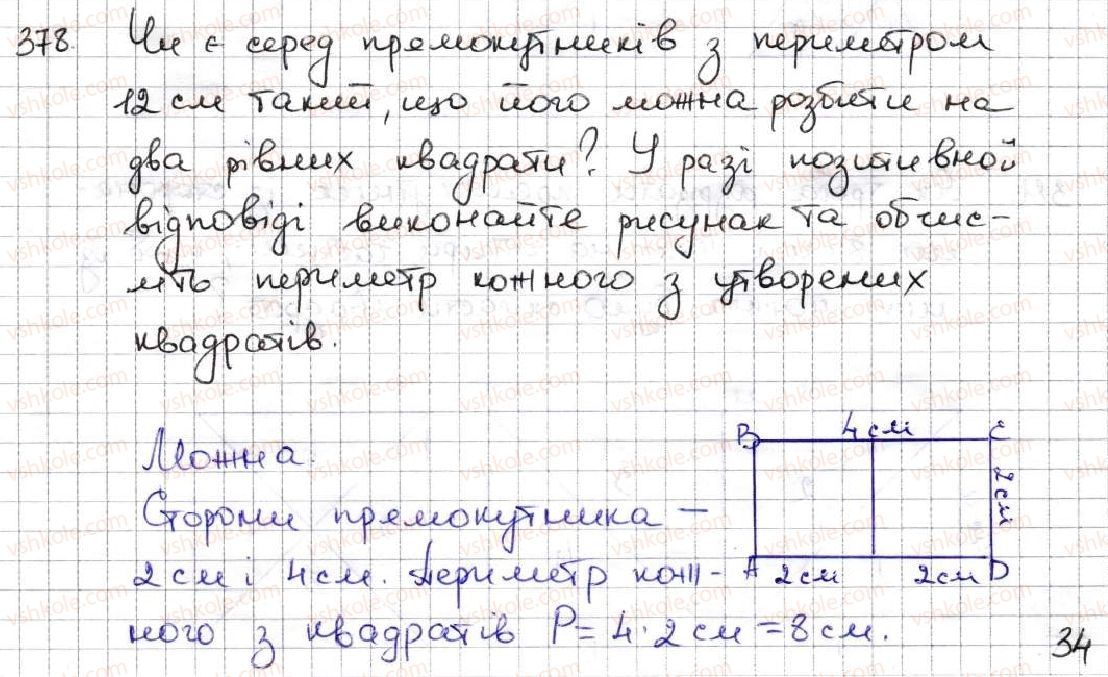 378. Чи є серед прямокутників з периметром
12 см такий, що його можна розбити на
два рівних квадрати? У разі позитивной
відповіді виконайте рисунак та обчис-
літь периметр кожного з утворених
квадратів.
Можна.
B 4 см C
2 см
Сторони прямокутника –
2 см і 4 см. Периметр кож-
A 2 см 2 см D
ного з квадратів P = 4 · 2 см = 8 см.
34